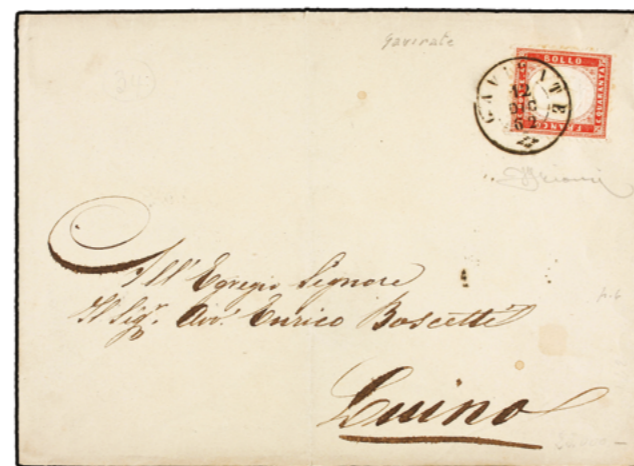 Gavirate
BOLLO
C. QUARANTA
FRANCO
GAVIRATE
12
DIC
62
All'Egregio Signore
Il Sigr. Avv. Enrico Boscetti
Luino